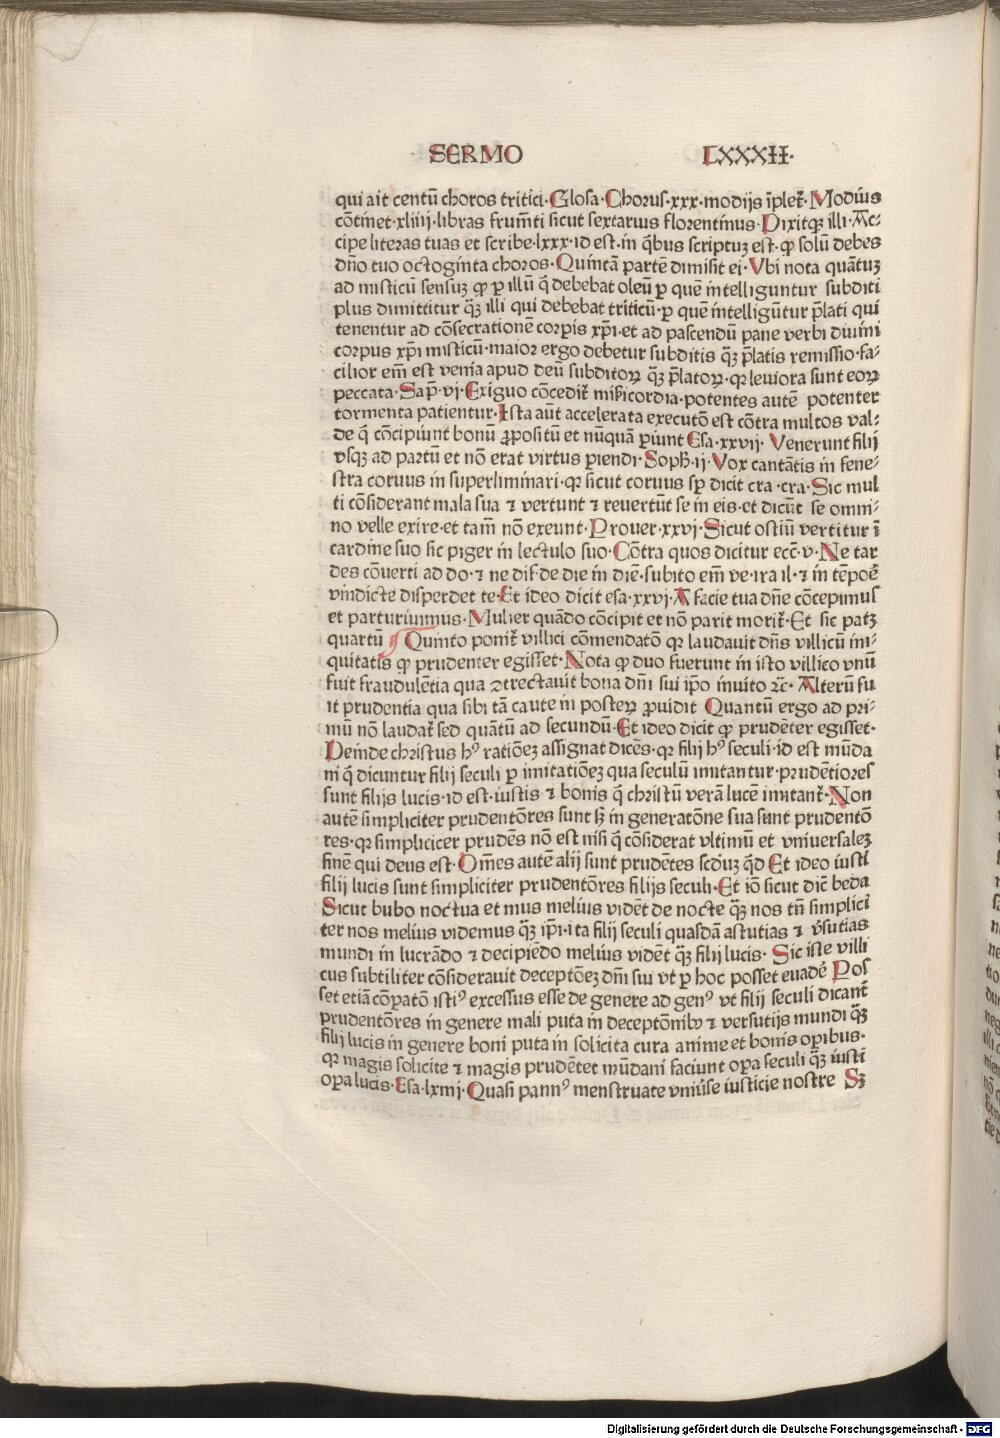 SERMO LXXXII·
qui ait centū choros tritici·Glosa·Chorus·xxx·modijs īplet᷑·Modius
cōtinet·xliiij·libras frumēti sicut sextarius florentinus·Dixitqꝫ illi·Ac⸗
cipe literas tuas et scribe·lxxx·id est·in q̄bus scriptuꝫ est·ꝙ solū debes
dn̄o tuo octoginta choros·Quintā partē dimisit ei·Vbi nota quātuꝫ
ad misticū sensuꝫ ꝙ ꝑ illū q̄ debebat oleū ꝑ quē intelliguntur subditi
plus dimittitur q̄ꝫ illi qui debebat triticū·ꝑ quē intelligūtur p̄lati qui
tenentur ad cōsecrationē corpis xp̄i·et ad pascendū pane verbi diuini
corpus xp̄i misticū·maior ergo debetur subditis q̄ꝫ p̄latis remissio·fa⸗
cilior em̄ est venia apud deū subditoꝝ q̄ꝫ p̄latoꝝ·qꝛ leuiora sunt eoꝝ
peccata·Sap̄·vj·Exiguo cōcedit᷑ mīicordia·potentes autē potenter
tormenta patientur·Ista aūt accelerata executō est cōtra multos val⸗
de q̄ cōcipiunt bonū ꝓpositū et nūquā ꝑiunt Esa·xxvij·Venerunt filij
vsqꝫ ad partū et nō erat virtus pariendi·Soph̄·ij·Vox cantātis in fene⸗
stra coruus in superliminari·qꝛ sicut coruus sp̄ dicit cra·cra·Sic mul
ti cōsiderant mala sua ⁊ vertunt ⁊ reuertūt se in eis·et dicūt se omni⸗
no velle exire·et tam̄ nō exeunt·Prouer·xxvj·Sicut ostiū vertitur ī
cardine suo sic piger in lectulo suo·Cōtra quos dicitur ecc̄·v·Ne tar
des cōuerti ad do·⁊ ne dif·de die in diē·subito em̄ ve·ira il·⁊ in tēpoē
vindicte disperdet te·Et ideo dicit esa·xxvj·A facie tua dn̄e cōcepimus
et parturiuimus·Mulier quādo cōcipit et nō parit morit᷑·Et sic patꝫ
quartū ¶ Quinto ponit᷑ villici cōmendatō qꝛ laudauit dn̄s villicū ini⸗
quitatis ꝙ prudenter egisset·Nota ꝙ duo fuerunt in isto villico vnū
fuit fraudulētia qua ꝺtrectauit bona dn̄i sui ip̄o inuito ⁊c̄· Alterū fu
it prudentia qua sibi tā caute in posteꝝ ꝓuidit Quantū ergo ad pri⸗
mū nō laudat᷑ sed quātū ad secundū·Et ideo dicit ꝙ prudēter egisset·
Deinde christus hꝰ ratiōeꝫ assignat dicēs·qꝛ filij hꝰ seculi·id est mūda
ni q̄ dicuntur filij seculi ꝑ imitatiōeꝫ qua seculū imitantur·prudētiores
sunt filijs lucis·id est·iustis ⁊ bonis q̄ christū verā lucē imitant᷑·Non
autē simpliciter prudentōres sunt sꝫ in generatōne sua sunt prudentō
res·qꝛ simplicicer prudēs nō est nisi q̄ cōsiderat vltimū et vniuersaleꝫ
finē qui deus est·Om̄es autē alij sunt prudētes scd̄uꝫ qd̄ Et ideo iusti
filij lucis sunt simpliciter prudentōres filijs seculi·Et iō sicut dic̄ beda
Sicut bubo noctua et mus melius vidēt de nocte q̄ꝫ nos tn̄ simplici
ter nos melius videmus q̄ꝫ ip̄i·ita filij seculi quasdā astutias ⁊ v̄sutias
mundi in lucrādo ⁊ decipiēdo melius vidēt q̄ꝫ filij lucis· Sic iste villi
cus subtiliter cōsiderauit deceptōeꝫ dn̄i sui vt ꝑ hoc posset euadē Pos
set etiā cōpatō istiꝰ excessus esse de genere ad genꝰ vt filij seculi dicant᷑
prudentōres in genere mali puta in deceptōnibꝫ ⁊ versutijs mundi q̄ꝫ
filij lucis in genere boni puta in solicita cura anime et bonis oꝑibus·
qꝛ magis solicite ⁊ magis prudētet mūdani faciunt oꝑa seculi q̄ꝫ iusti
oꝑa lucis·Esa·lxiiij·Quasi pannꝰ menstruate vniūse iusticie nostre Sꝫ
Digitalisierung gefördert durch die Deutsche Forschungsgemeinschaft - DFG